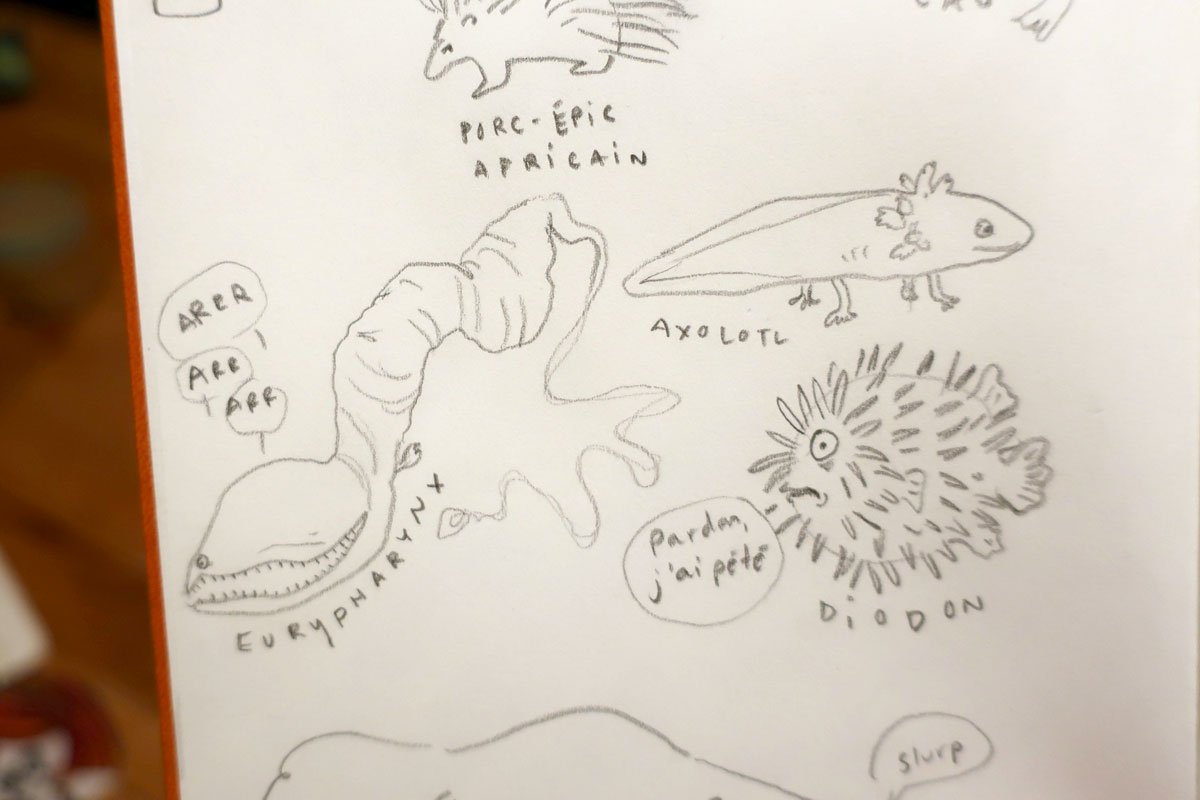 PORC-ÉPIC
AFRICAIN
AXOLOTL
ARRR
ARR
ARR
EURYPHARYNX
pardon,
j'ai pété
DIODON
slurp